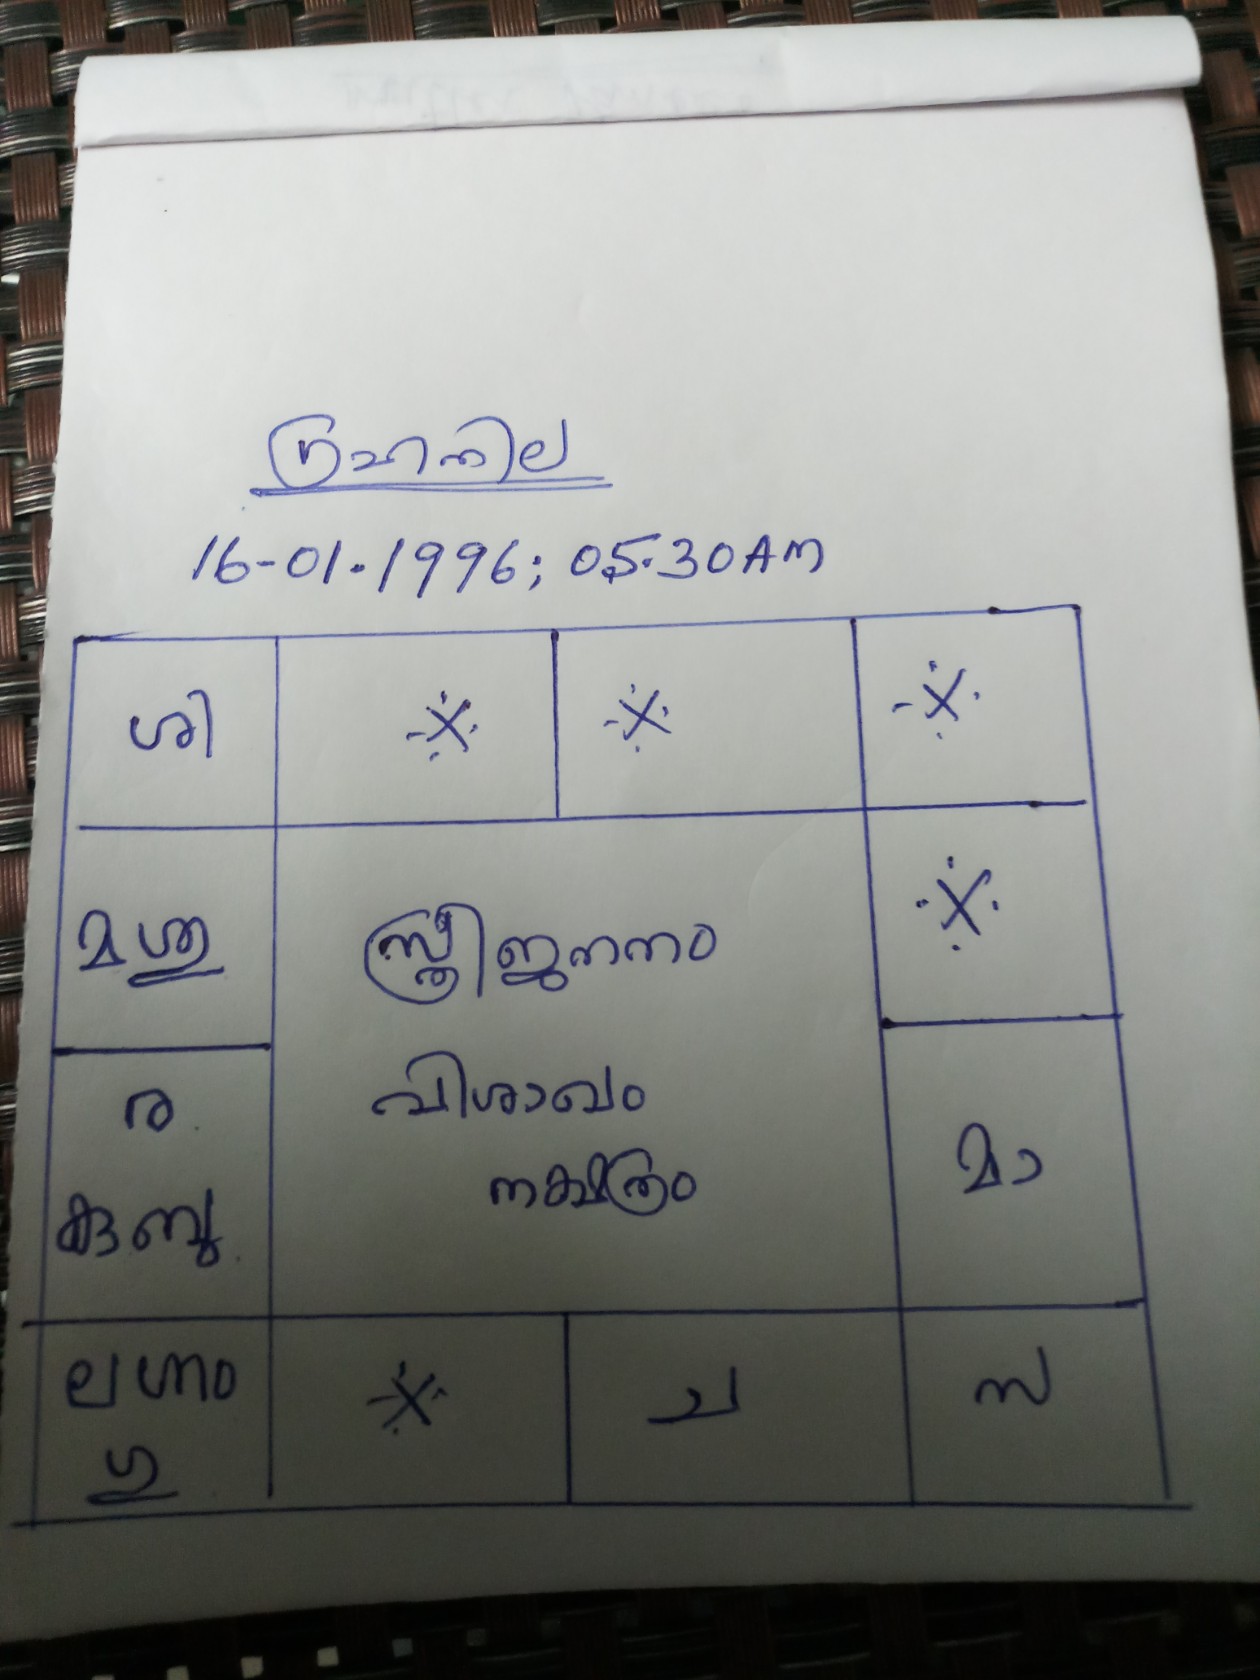 ഗ്രഹനില
16-01.1996; 05.30AM
ശി
മ ശു
സ്ത്രീജനനം
ര
വിശാഖം
മാ
നക്ഷത്രം
കുബു
ലഗ്നം
ച
സ
ഗു